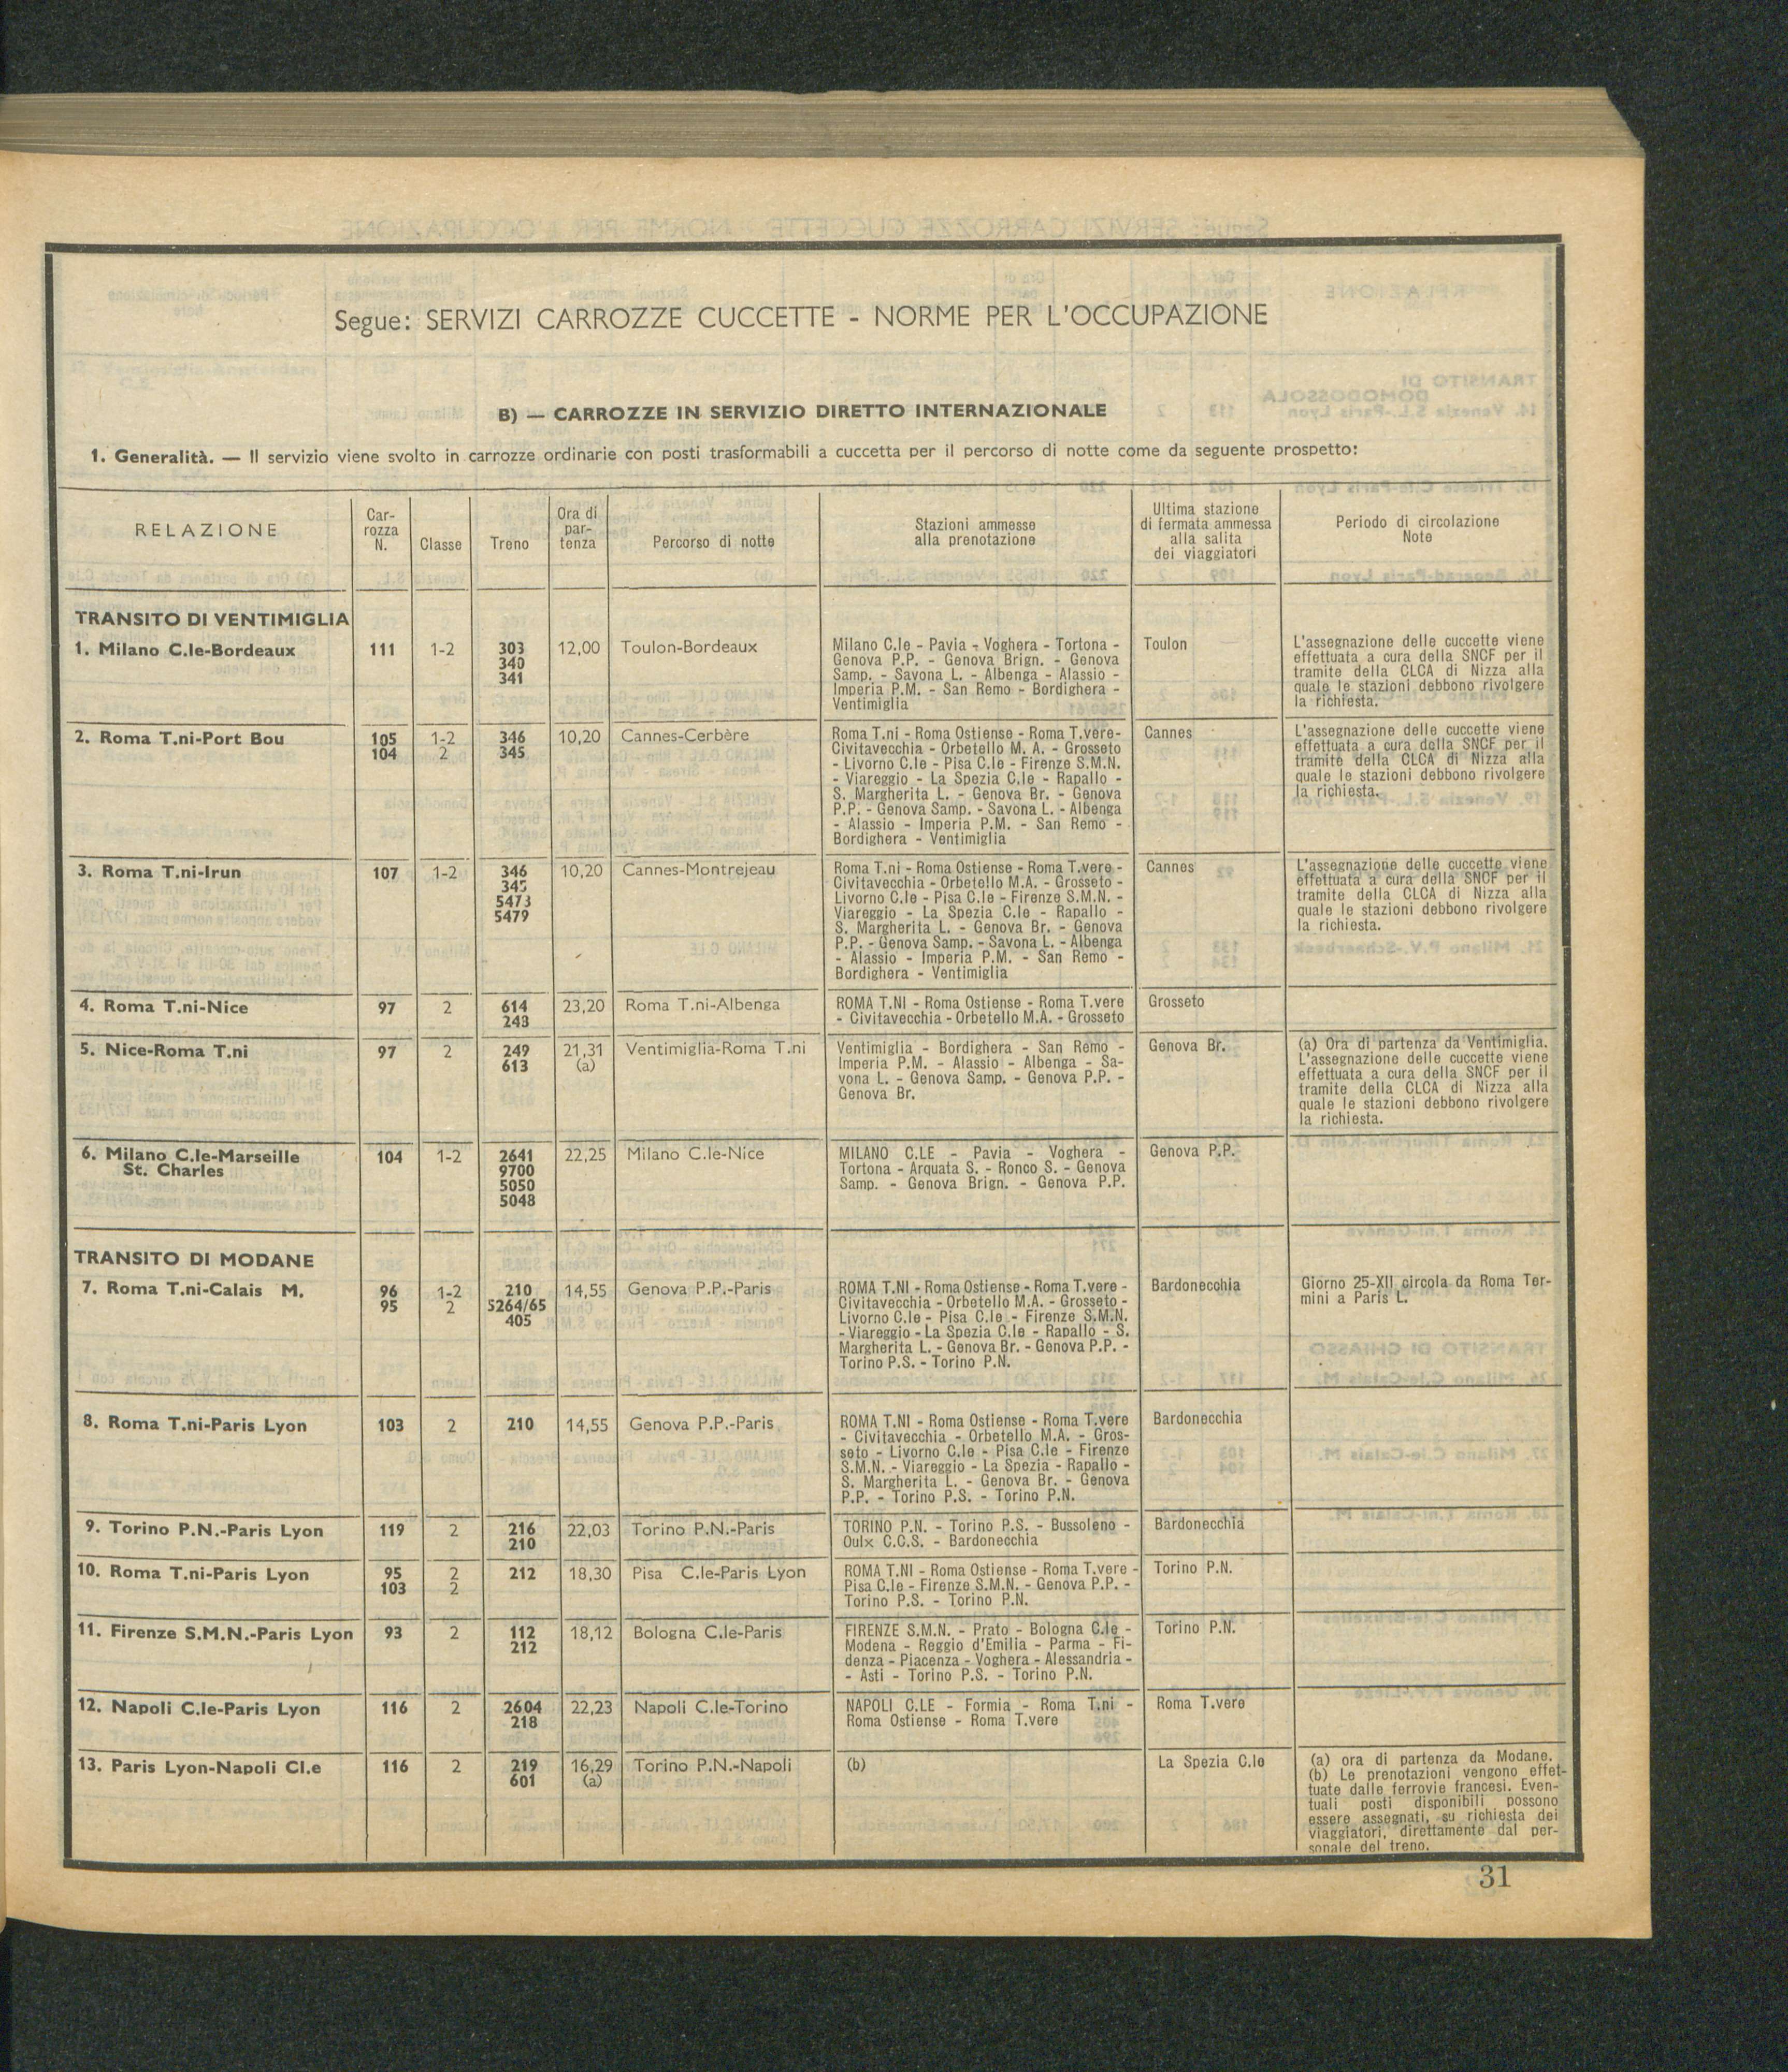 Segue: SERVIZI CARROZZE CUCCETTE - NORME PER L'OCCUPAZIONE
B) — CARROZZE IN SERVIZIO DIRETTO INTERNAZIONALE
1. Generalità. — Il servizio viene svolto in carrozze ordinarie con posti trasformabili a cuccetta per il percorso di notte come da seguente prospetto:
RELAZIONE
Car-
rozza
N.
Classe
Treno
Ora di
par-
tenza
Percorso di notte
Stazioni ammesse
alla prenotazione
Ultima stazione
di fermata ammessa
alla salita
dei viaggiatori
Periodo di circolazione
Note
TRANSITO DI VENTIMIGLIA
1. Milano C.le-Bordeaux
111
1-2
303
340
341
12,00
Toulon-Bordeaux
Milano C.le - Pavia - Voghera - Tortona -
Genova P.P. - Genova Brign. - Genova
Samp. - Savona L. - Albenga - Alassio -
Imperia P.M. - San Remo - Bordighera -
Ventimiglia
Toulon
L'assegnazione delle cuccette viene
effettuata a cura della SNCF per il
tramite della CLCA di Nizza alla
quale le stazioni debbono rivolgere
la richiesta.
2. Roma T.ni-Port Bou
105
104
1-2
2
346
345
10,20
Cannes-Cerbère
Roma T.ni - Roma Ostiense - Roma T.vere-
Civitavecchia - Orbetello M. A. - Grosseto
- Livorno C.le - Pisa C.le - Firenze S.M.N.
- Viareggio - La Spezia C.le - Rapallo -
S. Margherita L. - Genova Br. - Genova
P.P. - Genova Samp. - Savona L. - Albenga
- Alassio - Imperia P.M. - San Remo -
Bordighera - Ventimiglia
Cannes
L'assegnazione delle cuccette viene
effettuata a cura della SNCF per il
tramite della CLCA di Nizza alla
quale le stazioni debbono rivolgere
la richiesta.
3. Roma T.ni-Irun
107
1-2
346
345
5473
5479
10,20
Cannes-Montrejeau
Roma T.ni - Roma Ostiense - Roma T.vere -
Civitavecchia - Orbetello M.A. - Grosseto -
Livorno C.le - Pisa C.le - Firenze S.M.N. -
Viareggio - La Spezia C.le - Rapallo -
S. Margherita L. - Genova Br. - Genova
P.P. - Genova Samp. - Savona L. - Albenga
- Alassio - Imperia P.M. - San Remo -
Bordighera - Ventimiglia
Cannes
L'assegnazione delle cuccette viene
effettuata a cura della SNCF per il
tramite della CLCA di Nizza alla
quale le stazioni debbono rivolgere
la richiesta.
4. Roma T.ni-Nice
97
2
614
248
23,20
Roma T.ni-Albenga
ROMA T.NI - Roma Ostiense - Roma T.vere
- Civitavecchia - Orbetello M.A. - Grosseto
Grosseto
5. Nice-Roma T.ni
97
2
249
613
21,31
(a)
Ventimiglia-Roma T.ni
Ventimiglia - Bordighera - San Remo -
Imperia P.M. - Alassio - Albenga - Sa-
vona L. - Genova Samp. - Genova P.P. -
Genova Br.
Genova Br.
(a) Ora di partenza da Ventimiglia.
L'assegnazione delle cuccette viene
effettuata a cura della SNCF per il
tramite della CLCA di Nizza alla
quale le stazioni debbono rivolgere
la richiesta.
6. Milano C.le-Marseille
St. Charles
104
1-2
2641
9700
5050
5048
22,25
Milano C.le-Nice
MILANO C.LE - Pavia - Voghera -
Tortona - Arquata S. - Ronco S. - Genova
Samp. - Genova Brign. - Genova P.P.
Genova P.P.
TRANSITO DI MODANE
7. Roma T.ni-Calais M.
96
95
1-2
2
210
5264/65
405
14,55
Genova P.P.-Paris
ROMA T.NI - Roma Ostiense - Roma T.vere -
Civitavecchia - Orbetello M.A. - Grosseto -
Livorno C.le - Pisa C.le - Firenze S.M.N.
- Viareggio - La Spezia C.le - Rapallo - S.
Margherita L. - Genova Br. - Genova P.P. -
Torino P.S. - Torino P.N.
Bardonecchia
Giorno 25-XII circola da Roma Ter-
mini a Paris L.
8. Roma T.ni-Paris Lyon
103
2
210
14,55
Genova P.P.-Paris
ROMA T.NI - Roma Ostiense - Roma T.vere
- Civitavecchia - Orbetello M.A. - Gros-
seto - Livorno C.le - Pisa C.le - Firenze
S.M.N. - Viareggio - La Spezia - Rapallo -
S. Margherita L. - Genova Br. - Genova
P.P. - Torino P.S. - Torino P.N.
Bardonecchia
9. Torino P.N.-Paris Lyon
119
2
216
210
22,03
Torino P.N.-Paris
TORINO P.N. - Torino P.S. - Bussoleno -
Oulx C.C.S. - Bardonecchia
Bardonecchia
10. Roma T.ni-Paris Lyon
95
103
2
2
212
18,30
Pisa C.le-Paris Lyon
ROMA T.NI - Roma Ostiense - Roma T.vere -
Pisa C.le - Firenze S.M.N. - Genova P.P. -
Torino P.S. - Torino P.N.
Torino P.N.
11. Firenze S.M.N.-Paris Lyon
93
2
112
212
18,12
Bologna C.le-Paris
FIRENZE S.M.N. - Prato - Bologna C.le -
Modena - Reggio d'Emilia - Parma - Fi-
denza - Piacenza - Voghera - Alessandria -
- Asti - Torino P.S. - Torino P.N.
Torino P.N.
12. Napoli C.le-Paris Lyon
116
2
2604
218
22,23
Napoli C.le-Torino
NAPOLI C.LE - Formia - Roma T.ni -
Roma Ostiense - Roma T.vere
Roma T.vere
13. Paris Lyon-Napoli Cl.e
116
2
219
601
16,29
(a)
Torino P.N.-Napoli
(b)
La Spezia C.le
(a) ora di partenza da Modane.
(b) Le prenotazioni vengono effet-
tuate dalle ferrovie francesi. Even-
tuali posti disponibili possono
essere assegnati, su richiesta dei
viaggiatori, direttamente dal per-
sonale del treno.
31